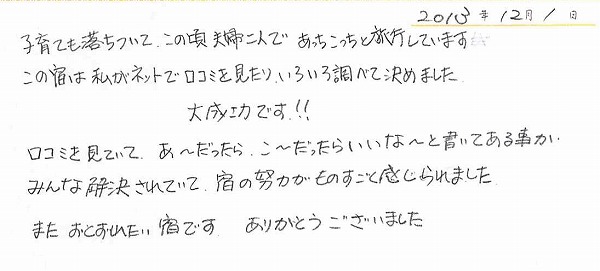 2013年12月1日
子育ても落ちついて、この頃夫婦二人であっちこっちと旅行しています
この宿は私がネットで口コミを見たり、いろいろ調べて決めました
大成功です!!
口コミを見ていて、あ〜だったら、こ〜だったらいいな〜と書いてある事が、
みんな解決されていて、宿の努力がものすごく感じられました
また おとずれたい 宿です ありがとうございました